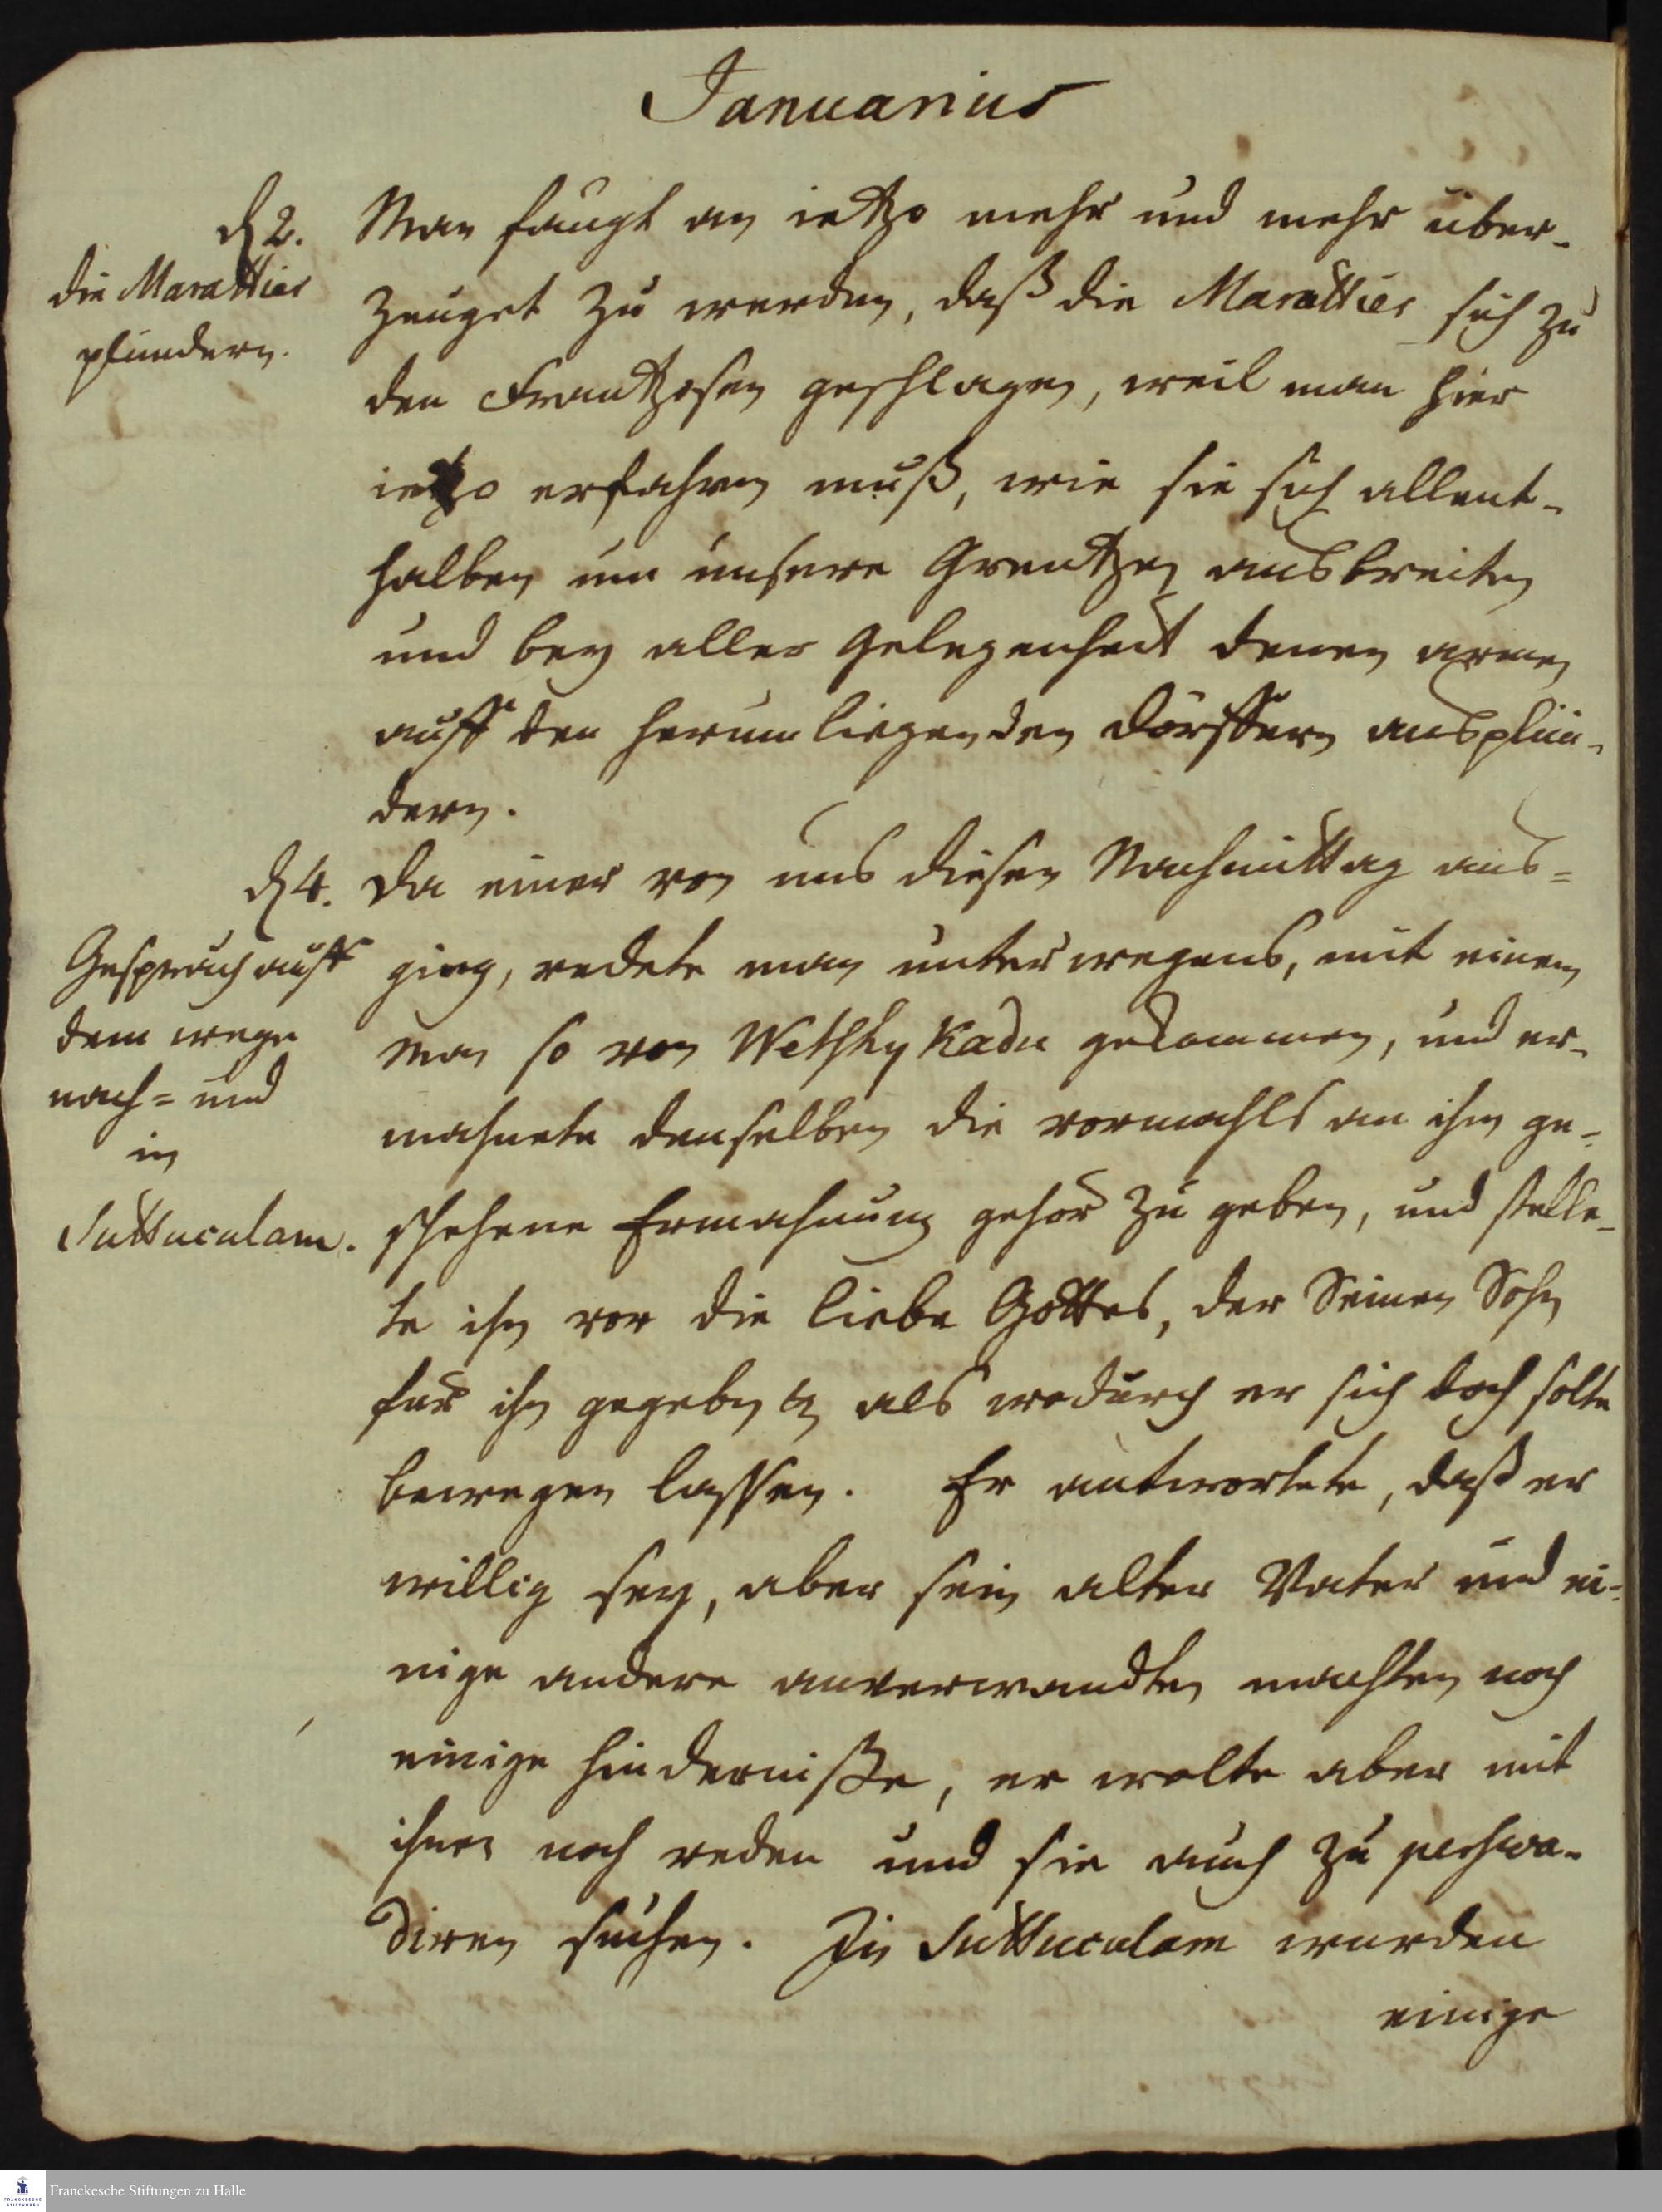 Januarius
d 2.
die Marattier
plündern.
Man fängt an ietzo mehr und mehr über-
zeuget zu werden, daß die Marattier sich zu
den Frantzosen geschlagen, weil man hier
ietzo erfahren muß, wie sie sich allent-
halben um unsere Grentzen ausbreiten
und bey aller Gelegenheit denen armen
auff den herumliegenden Dörffern ausplün-
dern.
d 4.
Gespräch auff
dem wege
nach= und
in
Suttuculam.
Da einer von uns diesen Nachmittag aus=
ging, redete man unterwegens, mit einem
man so von Wetshykadu gekommen, und er-
mahnete denselben die vormahls an ihn ge-
schehene Ermahnung gehör zu geben, und stelle-
te ihm vor die Liebe Gottes, der Seinen Sohn
für ihn gegeben als wodurch er sich doch solte
bewegen lassen. Er antwortete, daß er
willig sey, aber sein alter Vater und ei-
nige andere anverwandten machten noch
einige hinderniße, er wolte aber mit
ihnen noch reden und sie auch zu perswa-
diren suchen. In Suttuculam wurden
einige
Franckesche Stiftungen zu Halle
FRANCKESCHE
STIFTUNGEN